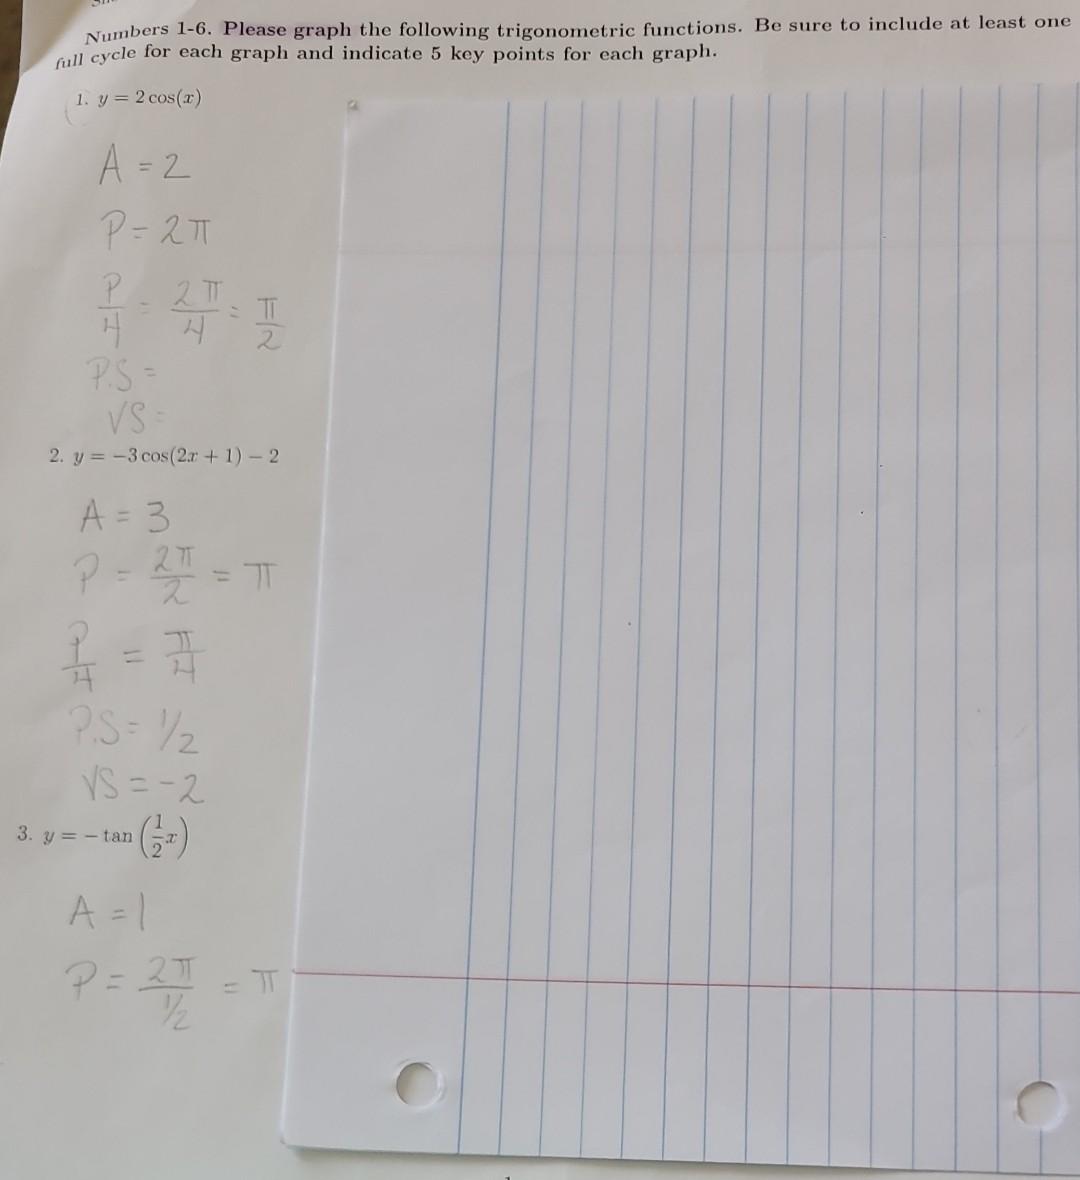 Numbers 1-6. Please graph the following trigonometric functions. Be sure to include at least one
full cycle for each graph and indicate 5 key points for each graph.
1. y = 2 cos(x)
A = 2
P = 2π
P/4 = 2π/4 = π/2
P.S =
VS =
2. y = −3 cos(2x + 1) − 2
A = 3
P = 2π/2 = π
P/4 = π/4
P.S = 1/2
VS = -2
3. y = − tan (1/2 x)
A = 1
P = 2π/1/2 = π